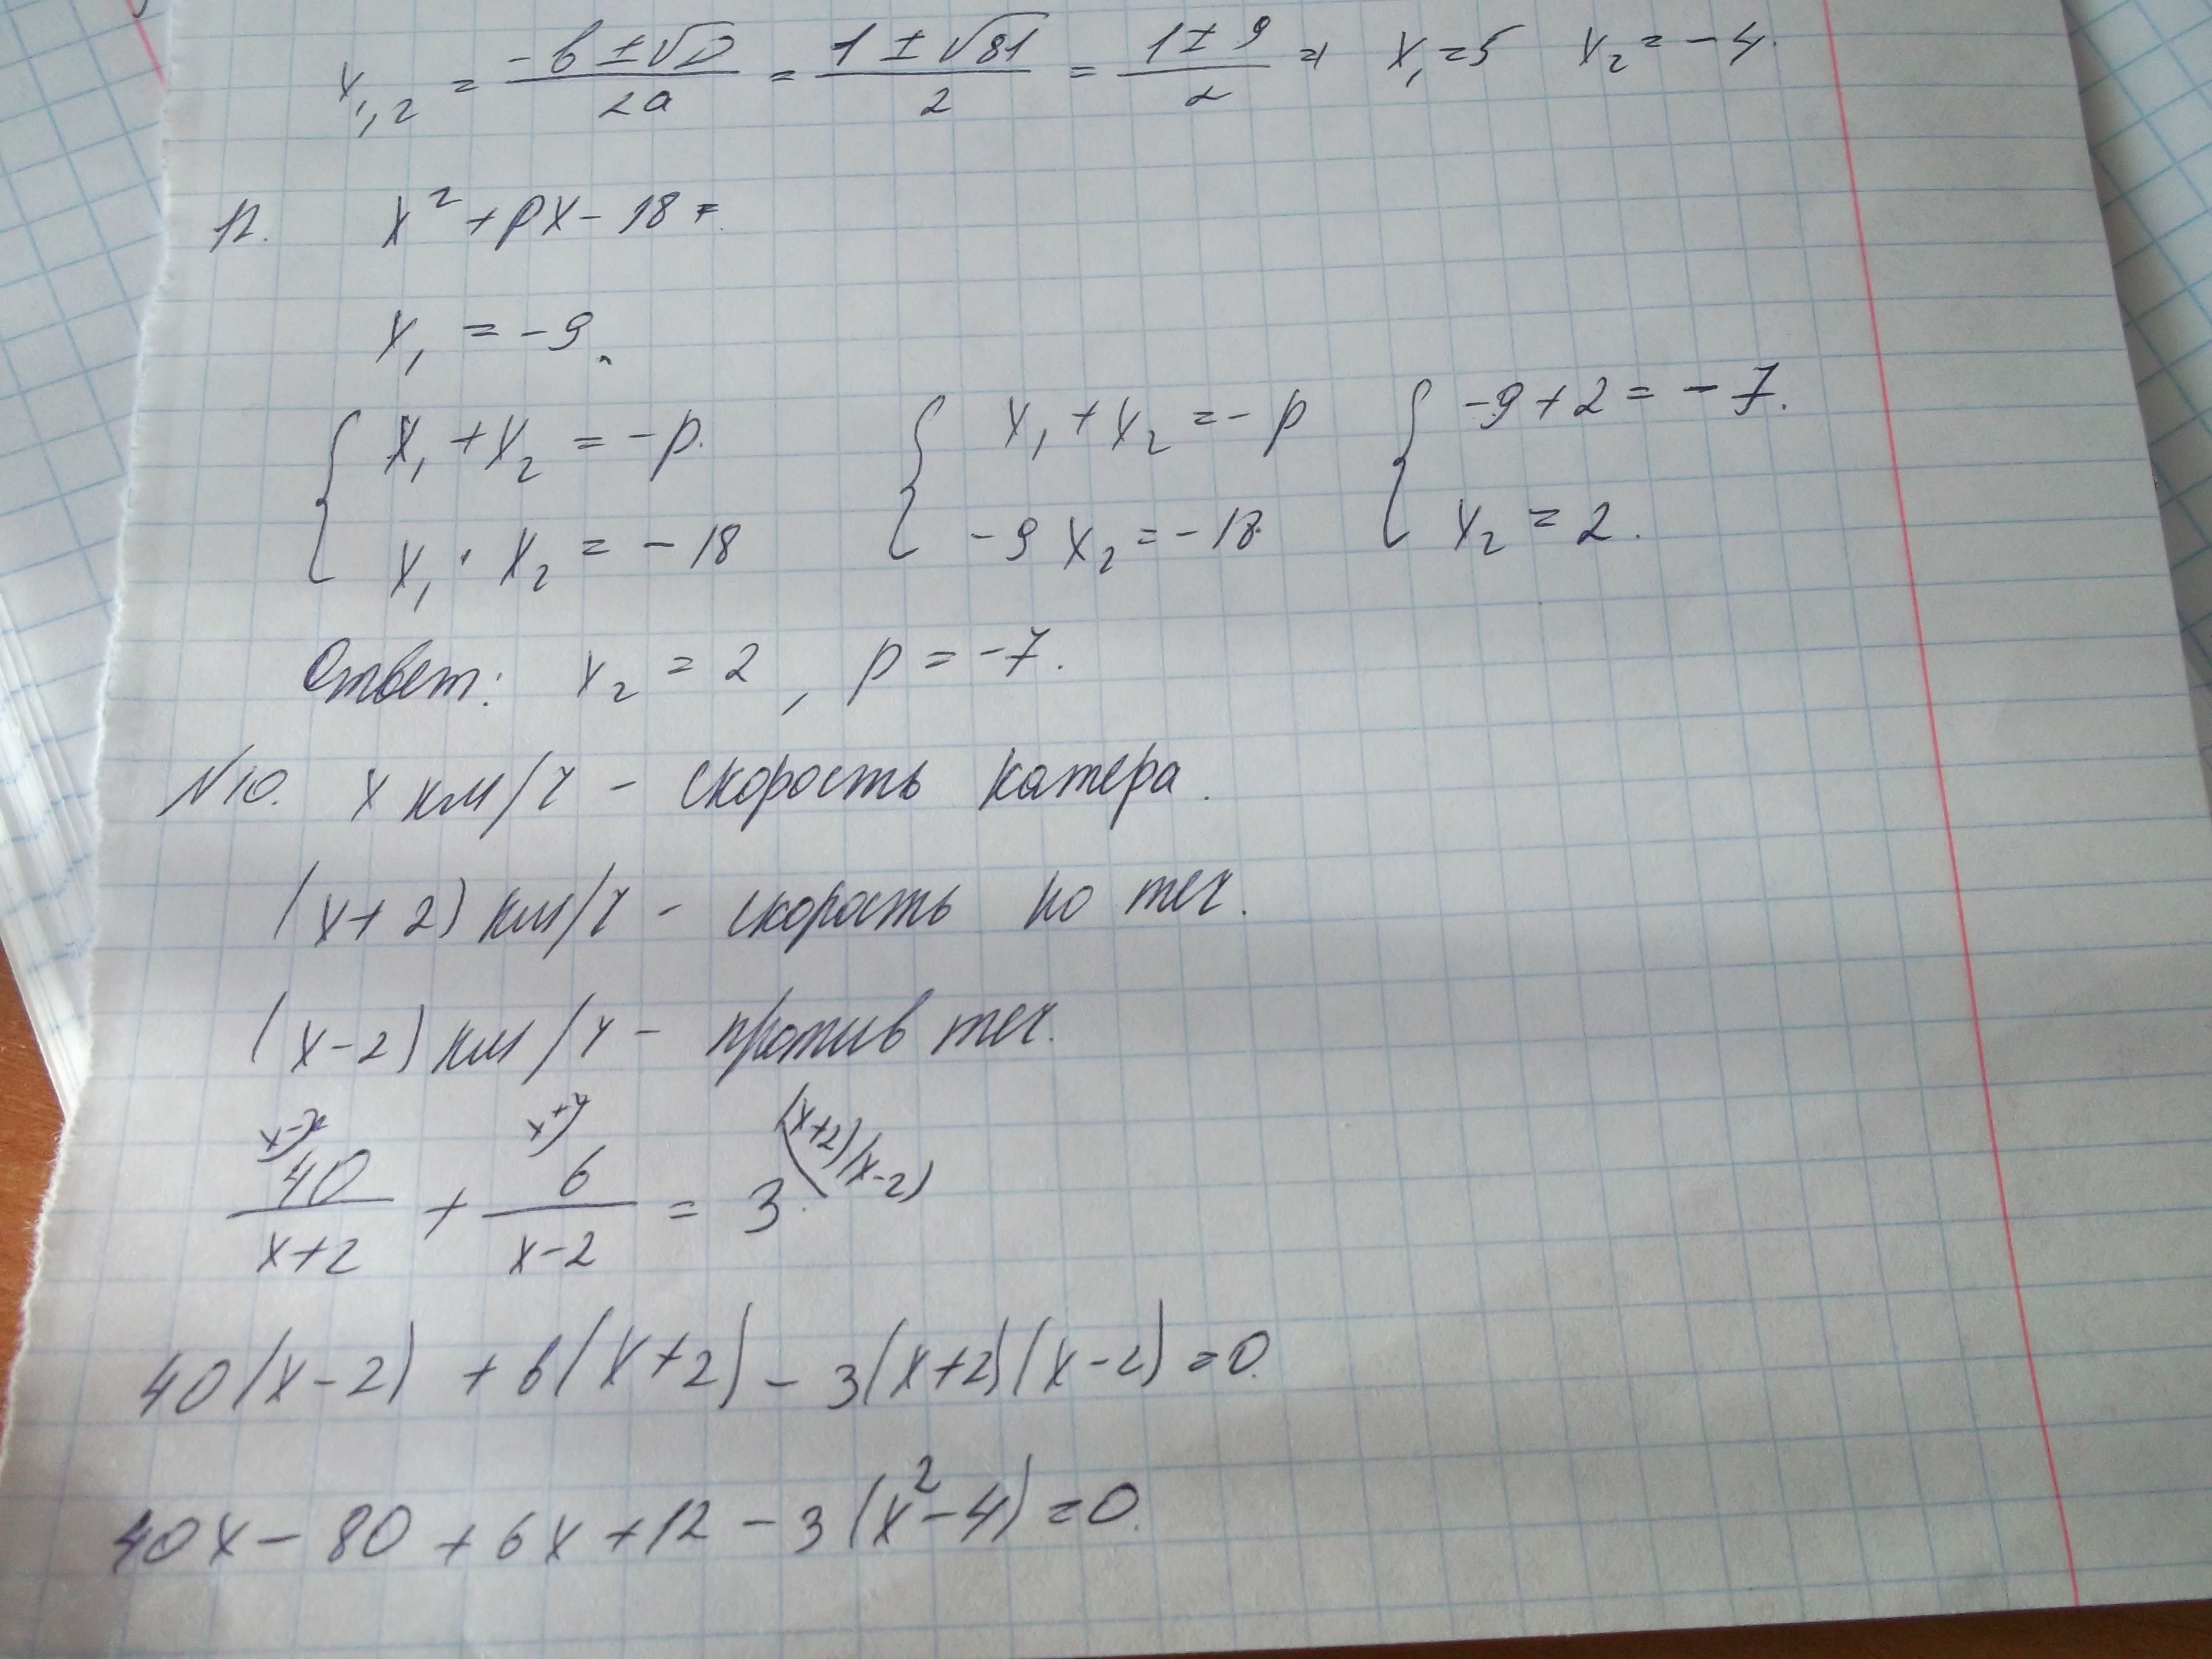 x₁,₂ = (-b ± √D)/(2a) = (1 ± √81)/2 = (1 ± 9)/2 = x₁ = 5 x₂ = -4.
12. x² + px - 18 =
x₁ = -9.
{ x₁ + x₂ = -p. { x₁ + x₂ = -p { -9 + 2 = -7.
x₁ · x₂ = -18 -9x₂ = -18 x₂ = 2.
Ответ: x₂ = 2, p = -7.
N10. x км/ч - скорость катера.
(x+2) км/ч - скорость по теч.
(x-2) км/ч - против теч.
x-2) 40/(x+2) + 6/(x-2) = 3 (x+2)(x-2)
40(x-2) + 6(x+2) - 3(x+2)(x-2) = 0.
40x - 80 + 6x + 12 - 3(x² - 4) = 0.